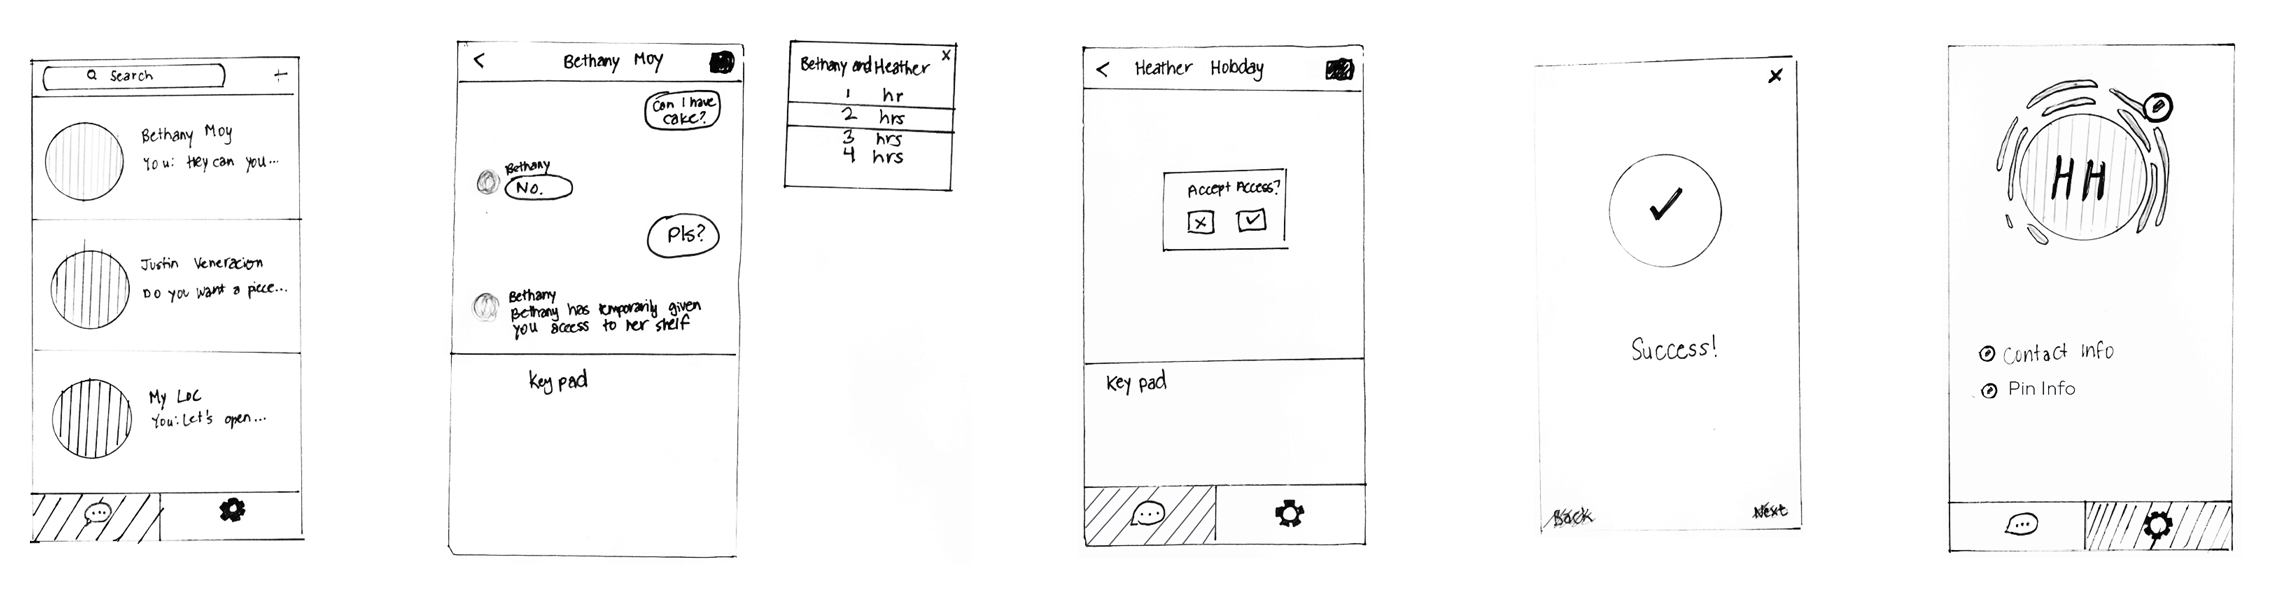 Search
Bethany Moy
You: Hey can you...
Justin Veneracion
Do you want a piece...
My Loc
You: Let's open...
Bethany Moy
Can I have
cake?
Bethany
No.
Pls?
Bethany
Bethany has temporarily given
you access to her shelf
Key pad
Bethany and Heather
X
1 hr
2 hrs
3 hrs
4 hrs
Heather Hobday
Accept Access?
Key pad
X
Success!
Back
Next
HH
Contact Info
Pin Info